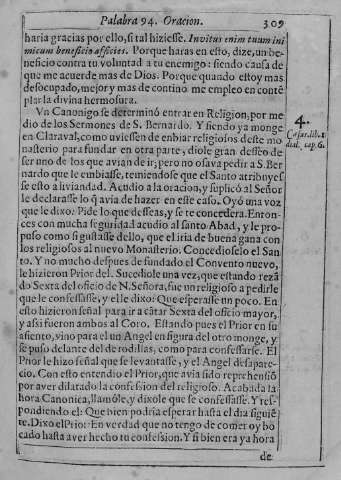 Palabra 94. Oracion. 309
haria gracias por ello, si tal hiziesse. Invitus enim tuum ini
micum beneficio afficies. Porque haras en esto, dize, un be-
neficio contra tu voluntad a tu enemigo: siendo causa de
que me acuerde mas de Dios. Porque quando estoy mas
desocupado, mejor y mas de contino me empleo en conte̅
plar la divina hermosura.
Vn Canonigo se determinò entrar en Religion, por me
dio de los Sermones de S. Bernardo. Y siendo ya monge
en Claraval, como uviessen de enbiar religiosos deste mo
nasterio para fundar en otra parte, diole gran desseo de
ser uno de los que avian de ir; pero no osava pedir a S. Ber
nardo que le embiasse, temiendose que el Santo atribuyes
se esto a liviandad. Acudio a la oracion, y suplicò al Señor
le declarasse lo q̅ avia de hazer en este caso. Oyó una voz
que le dixo: Pide lo que desseas, y se te concedera. Enton-
ces con mucha seguridad acudio al santo Abad, y le pro
puso como si gustasse dello, que el iria de buena gana con
los religiosos al nuevo Monasterio. Concedioselo el San
to. Y no mucho despues de fundado el Convento nuevo,
le hizieron Prior del. Sucediole una vez, que estando reza̅
do Sexta del oficio de N. Señora, fue un religioso a pedirle
que le confessasse, y el le dixo: Que esperasse un poco. En
esto hizieron señal para ir a cãtar Sexta del oficio mayor,
y assi fueron ambos al Coro. Estando pues el Prior en su
asiento, vino para el un Angel en figura del otro monge, y
se puso delante del de rodillas, como para confessarse. El
Prior le hizo señal que se levantasse, y el Angel desapare-
cio. Con esto entendio el Prior, que avia sido reprehensiõ
por aver dilatado la confession del religioso. Acabada la
hora Canonica, llamóle, y dixole que se confessasse. Y res-
pondiendo el: Que bien podria esperar hasta el dia siguiẽ
te. Dixo el Prior: En verdad que no tengo de comer oy bo
cado hasta aver hecho tu confession. Y si bien era ya hora
de
4.
Cesar. lib. 1
dial. cap. 6.